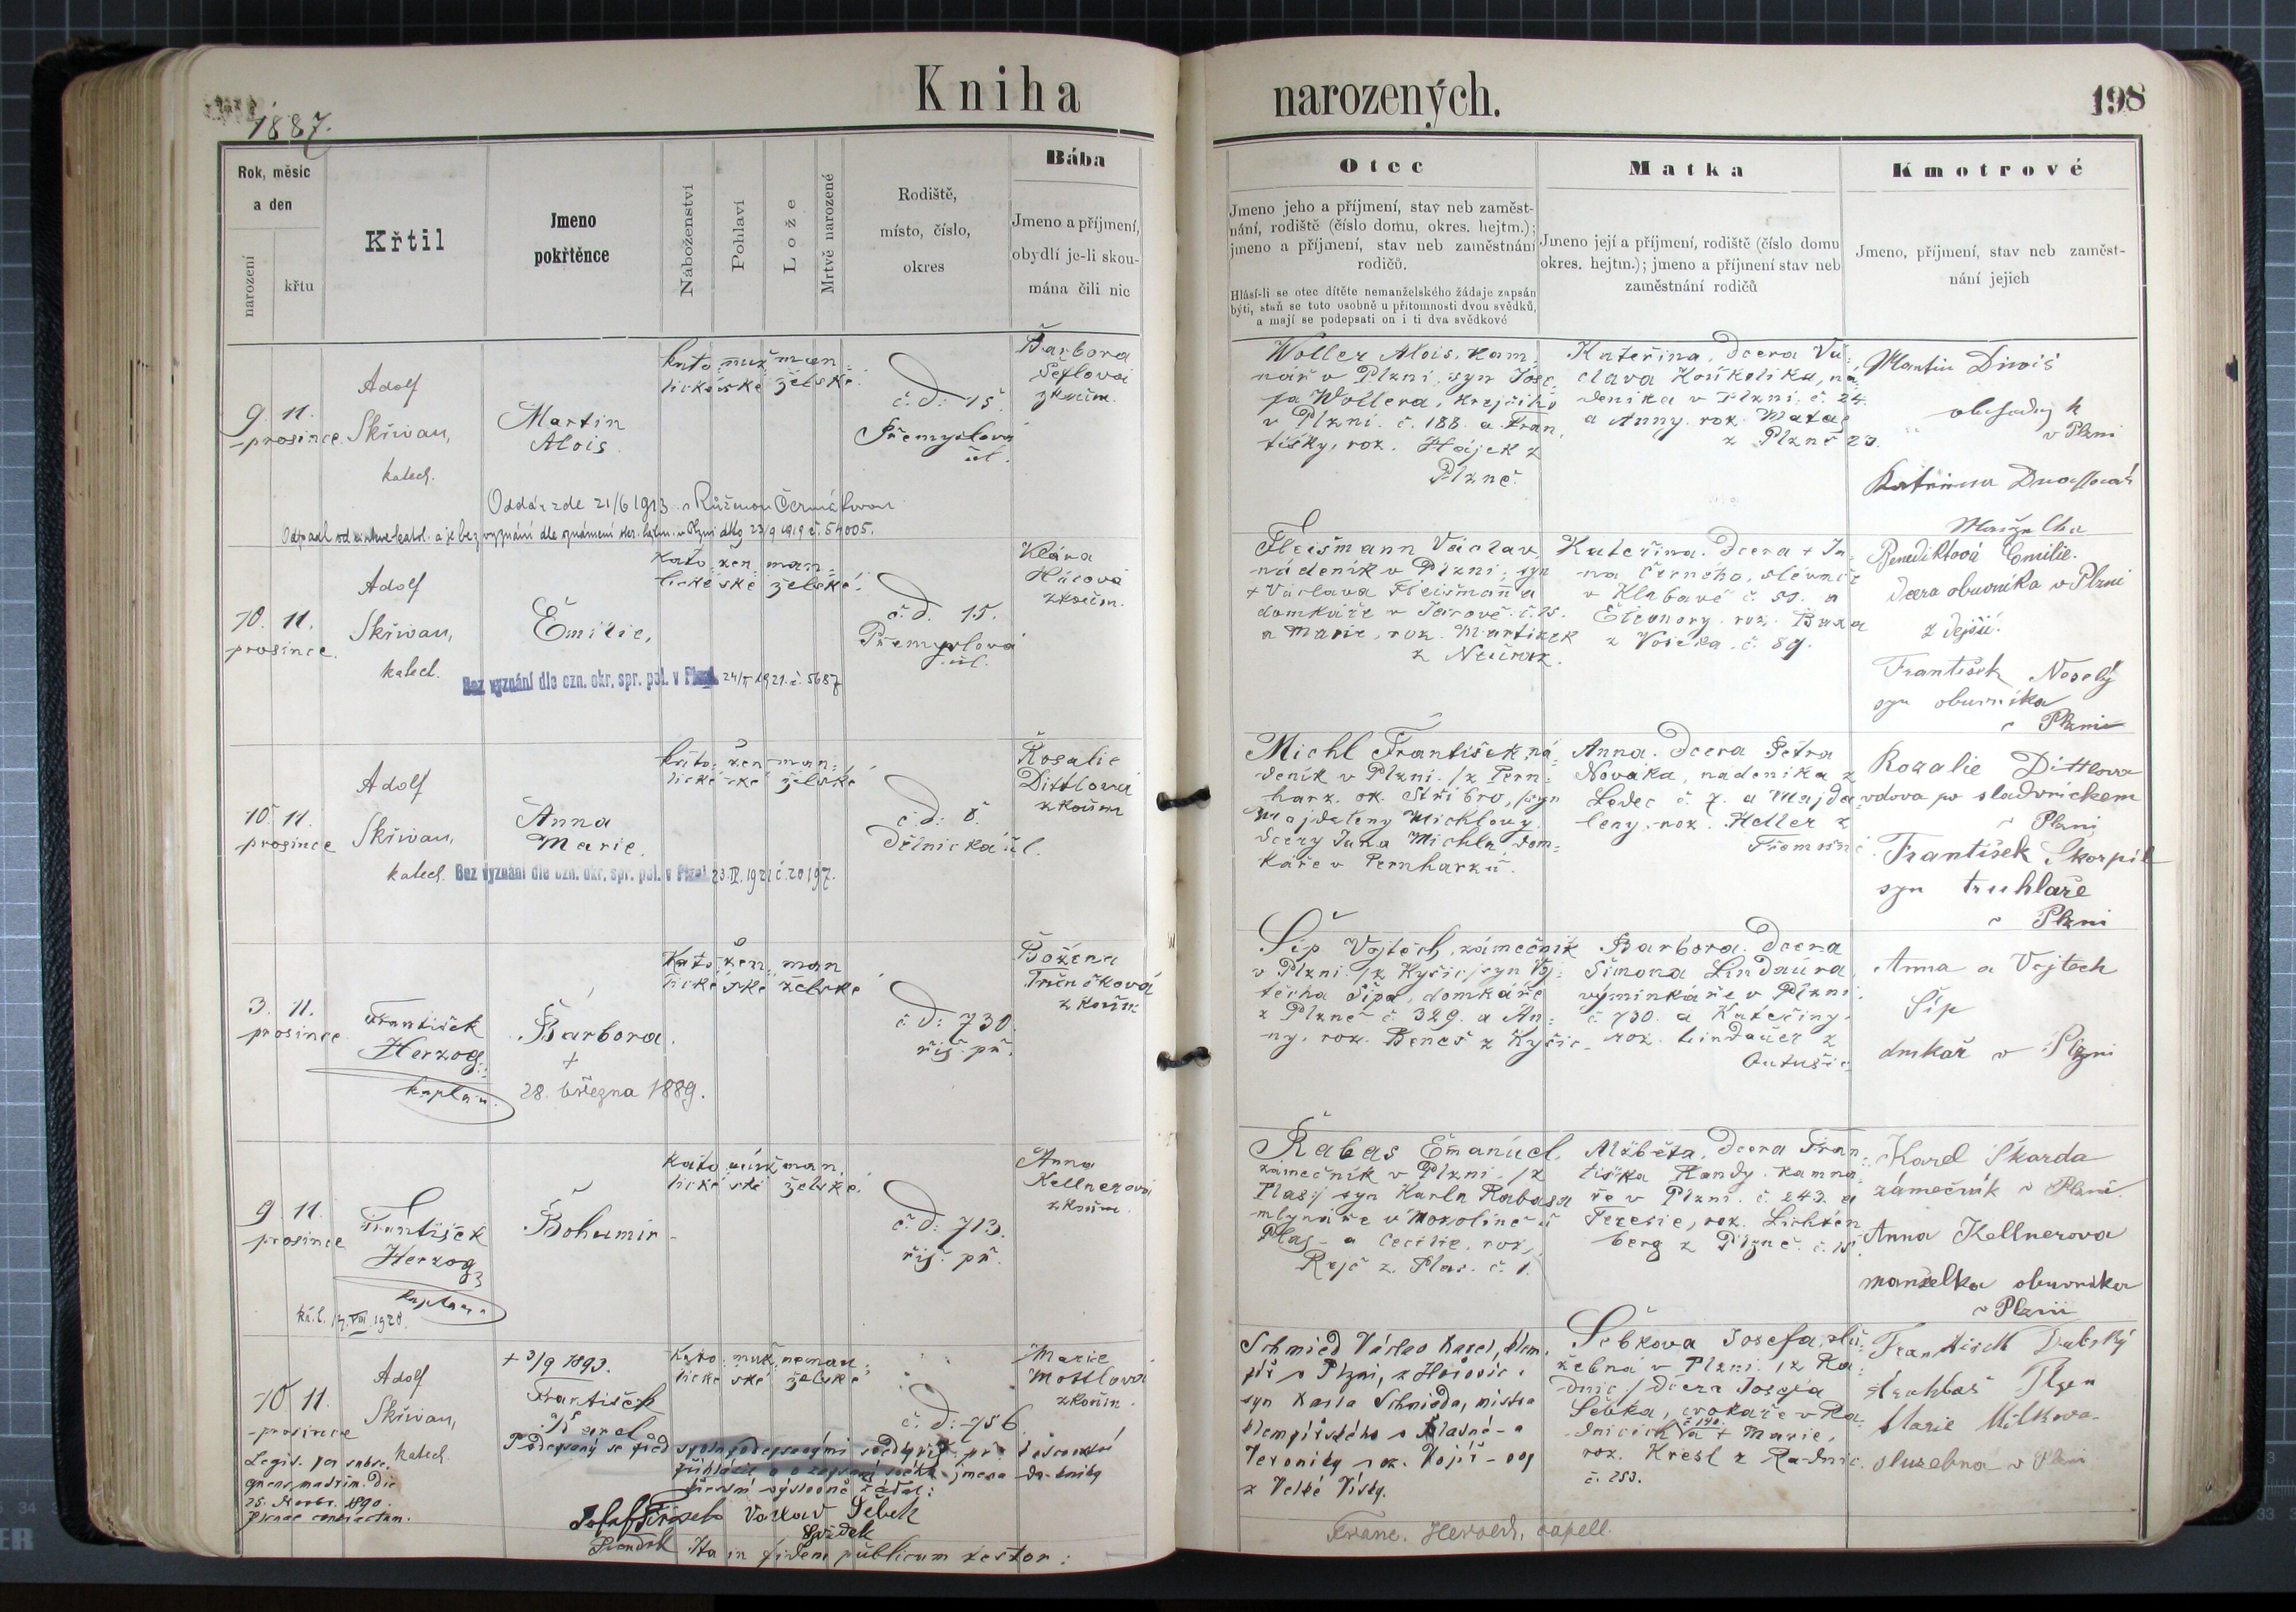 Kniha narozených.
198
1887.
Rok, měsíc
a den
narození
křtu
Křtil
Jmeno
pokřtěnce
Náboženství
Pohlaví
Lože
Mrtvě narozené
Rodiště,
místo, číslo,
okres
Bába
Jmeno a příjmení,
obydlí je-li skou-
mána čili nic
Otec
Jmeno jeho a příjmení, stav neb zaměst-
nání, rodiště (číslo domu, okres. hejtm.);
jmeno a příjmení, stav neb zaměstnání
rodičů.
Hlásí-li se otec dítěte nemanželského žádaje zapsán
býti, staň se toto osobně u přítomnosti dvou svědků,
a mají se podepsati on i ti dva svědkové
Matka
Jmeno její a příjmení, rodiště (číslo domu
okres. hejtm.); jmeno a příjmení stav neb
zaměstnání rodičů
Kmotrové
Jmeno, příjmení, stav neb zaměst-
nání jejich
9. 11.
prosince
Adolf
Skřivan,
katech.
Martin
Alois.
kato muž man
lické ské želské
č. d. 15.
Přemyslova
ul.
Barbora
zkouš.
Woller Alois, kam-
nář v Plzni, syn Jose-
fa Wollera, krejčího
v Plzni. č. 188. a Fran
tišky, roz. Hájek z
Plzně.
Kateřina. dcera Vá-
clava Koříkelika, ná-
deníka v Plzni. č. 24.
a Anny roz. Mataš
z Plzně 23.
Martin
v Plzni
Oddán zde 21/6 1913 s Růženou Čermákovou
Odpadl od církve katol. a je bez vyznání dle oznámení okr. hejtm. v Plzni ddto 23/9 1919 č. 54005.
10. 11.
prosince.
Adolf
Skřivan,
katech.
Emilie,
kato žen man-
lické ské želské
č. d. 15.
Přemyslova
ul.
Klára
Hásová
zkouš.
Fleišmann Václav,
nádeník v Plzni, syn
+ Václava Fleišmanna
domkáře v Jarově. č. 25.
a Marie, roz. Martínek
z Neuros.
Kateřina. dcera + Ja-
na Černého, slévače
v Klabavě č. 50. a
Eleonory roz. Buxa
z Voseka. č. 89.
Benediktová Emilie.
dcera obuvníka v Plzni
z dejší.
František Veselý
syn obuvníka
v Plzni
Bez vyznání dle ozn. okr. spr. pol. v Plzni 24/5 1921. č. 5687
10. 11.
prosince
Adolf
Skřivan,
katech.
Anna
Marie.
kato- žen man-
lické ské želské
č. d. 8.
Dělnická ul.
Rosalie
Dittlová
zkouš
Michl František, ná-
deník v Plzni. /z Pern-
harz. ok. Stříbro, /syn
Majdaleny Michlovy
dcery Jana Michla, dom-
káře v Pernharzu.
Anna. dcera Petra
Nováka, nádeníka z
Ledec č. 7. a Majda-
leny, roz. Heller z
Třemošné.
Rozalie Dittlova
vdova po sladovnickem
v Plzni
František Škorpil
syn truhláře
v Plzni
Bez vyznání dle ozn. okr. spr. pol. v Plzni 23. IV. 1921 č. 20197.
3. 11.
prosince
František
Herzog
kaplan.
Barbora.
+
28. března 1889.
Kato- žen man
lické ské želské
č. d: 730
říš. př.
Božena
Trůnečková
zkouš.
Šíp Vojtěch, zámečník
v Plzni /z Kyšic/ syn Voj-
těcha Šípa, domkáře
z Plzně č. 329. a An-
ny, roz. Beneš z Kyšic.
Barbora. dcera
Šimona Lindaura,
výminkáře v Plzni.
č. 730. a Kateřiny,
roz. Lindauer z
Anna a Vojtech
Šíp
domkař v Plzni
9 11.
prosince
František
Herzog
kaplan
Bohumír
kato muž man
lické ské želské.
č. d: 713.
říš. př.
Anna
Kellnerová
zkouš.
Rabas Emanuel,
zámečník v Plzni. /z
Plas:/ syn Karla Rabasa
mlynáře v Mozolíně u
Plas- a Cecilie, roz.
Rejč z Plas. č. 1.
Alžběta. dcera Fran-
tiška Handy. kamna-
ře v Plzni. č. 243. a
Terezie, roz. Lichten
berg z Plzně. č. 15.
Karel Skarda
zámečník v Plzni.
Anna Kellnerova
manželka obuvníka
v Plzni
kř. l. 17. VIII. 1928.
10 11.
prosince
Adolf
Skřivan,
katech.
+ 3/9 1893.
František
Karel
Kato muž neman
lické ské želské
č. d: 756
říš. př.
Marie
Mottlová
zkouš.
Schmied Václav Karel, klem-
píř v Plzni, z Hořovic
syn Karla Schmieda, mistra
klempířského v Kladně - a
Veroniky roz. Vojíř - ový
z Velké Vísky.
Šebkova Josefa, slu-
žebná v Plzni. /z Ra-
dnic/ dcera Josefa
Šebka, cvokaře v Ra-
dnicích č 190. a + Marie,
roz. Kresl z Radnic.
č. 253.
Frantisek Dubský
Plzen
Marie Milkova
sluzebna v Plzni
Legit. per subse-
quens matrim. die
25. Novbr. 1890.
Plsnae contractum.
Podepsaný se před spolupodepsanými svědky
přihlásil a o zapsání svého jmena
výslovně žádal:
Václav Šebek
svědek
Ita in fidem publicam testor:
Franc. Herzog, capell.